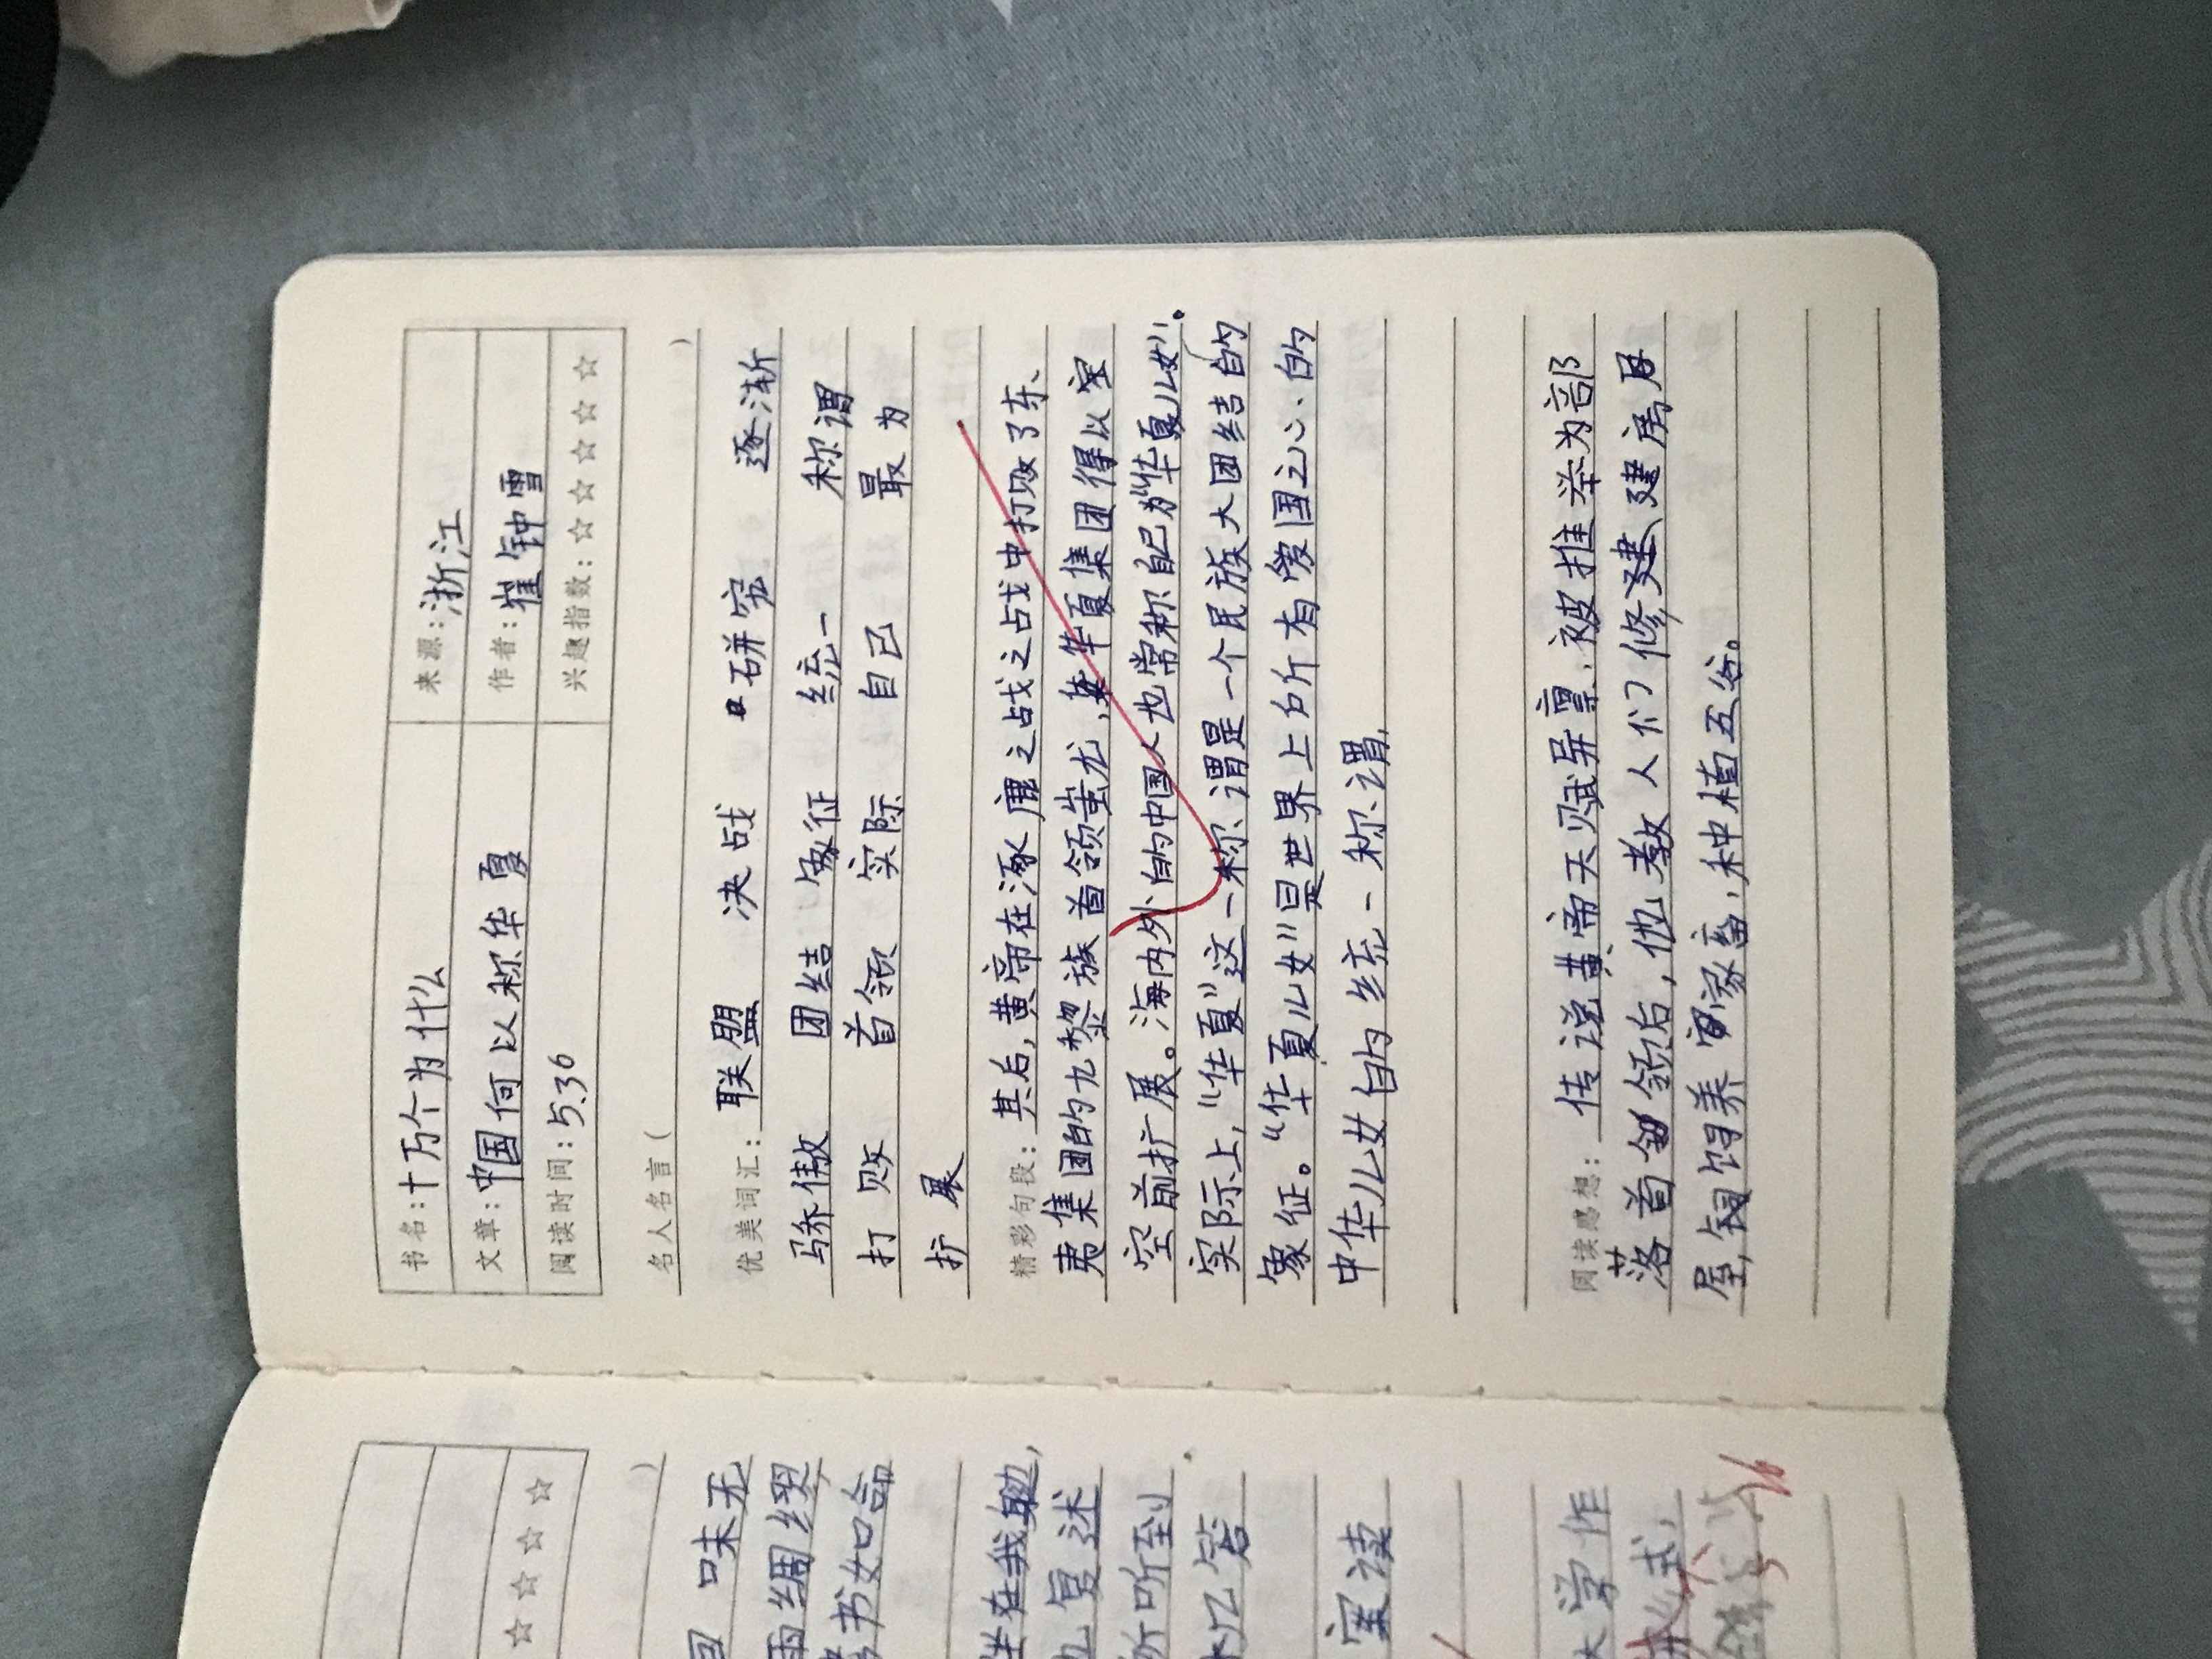 书名:十万个为什么 来源:浙江
文章:中国何以称华夏 作者:崔钟雪
阅读时间:5.30 兴趣指数:☆☆☆☆☆
名人名言( )
优美词汇:联盟 决战 研究 逐渐
骄傲 团结 象征 统一 称谓
打败 首领 实际 自己 最为
扩展
精彩句段:其后,黄帝在涿鹿之战之战中打败了东、
夷集团的九黎族首领蚩尤,华夏集团得以空
空前扩展。海内外的中国人也常称自己为“华夏儿女”。
实际上,“华夏”这一称谓是一个民族大团结的
象征。“华夏儿女”是世界上所有爱国之心的
中华儿女的统一称谓,
阅读感想:传说黄帝天赋异禀,被推举为部
落首领后,他教人们修建建房
屋,饲养家畜,种植五谷。
味无
雨绸缪
书如
坐在我
复述
所听到
忆答
室读
大学作
式,